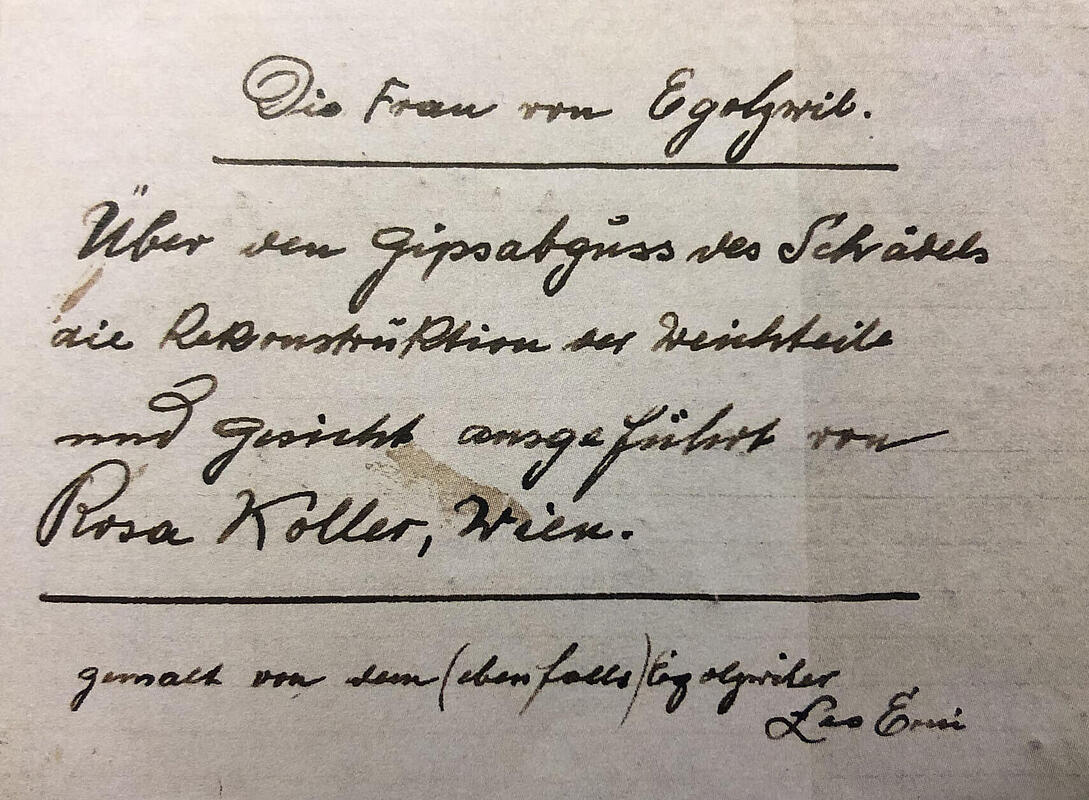 Die Frau von Egolzwil.
Über den Gipsabguss des Schädels
die Rekonstruktion der Weichteile
und Gesicht ausgeführt von
Rosa Koller, Wien.
gemalt von dem (ebenfalls) Egolzwiler
Leo Erni